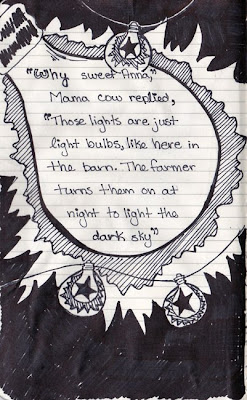 "Why sweet Anna,"
Mama cow replied,
"Those lights are just
light bulbs, like here in
the barn. The farmer
turns them on at
night to light the
dark sky"